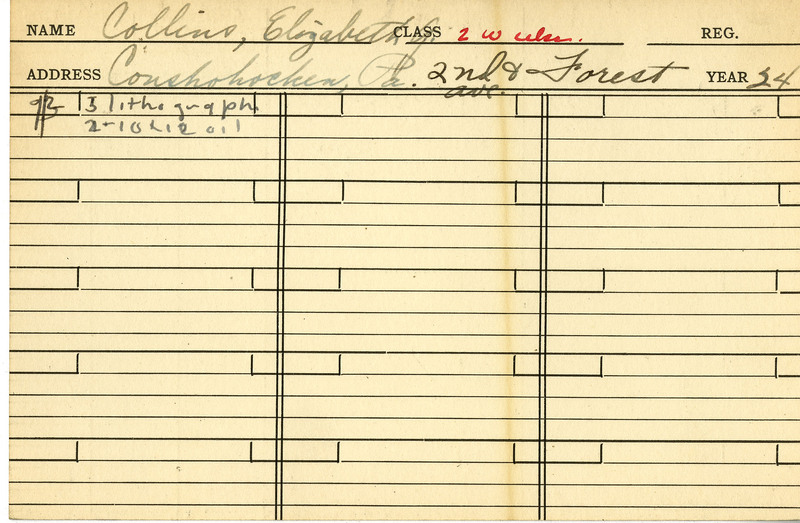 NAME Collins, Elizabeth J. CLASS 2 wcks. REG.
ADDRESS Conshohocken, Pa. 2nd & Forest YEAR 24
ave.
3 lithograph
2-10x12 oil